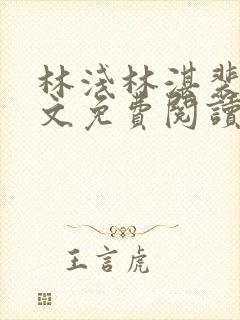 林淺林湛裴
文免費閱讀
王言虎